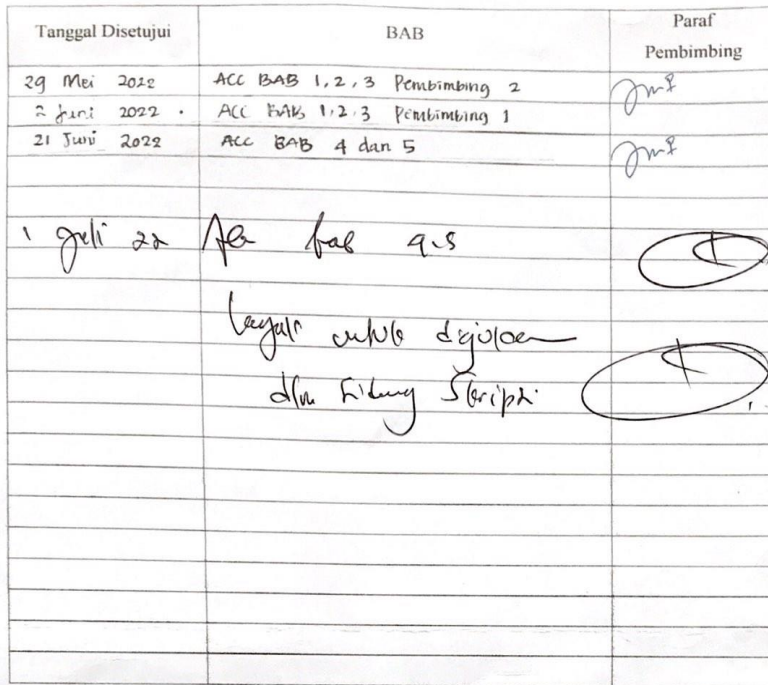 Tanggal Disetujui BAB Paraf
Pembimbing
29 Mei 2022 ACC BAB 1, 2, 3 Pembimbing 2
2 Juni 2022 . ACC BAB 1, 2, 3 Pembimbing 1
21 Juni 2022 ACC BAB 4 dan 5
1 Juli 22 Acc bab 4.5
Layak untuk diajukan
dlm Sidang Skripsi.